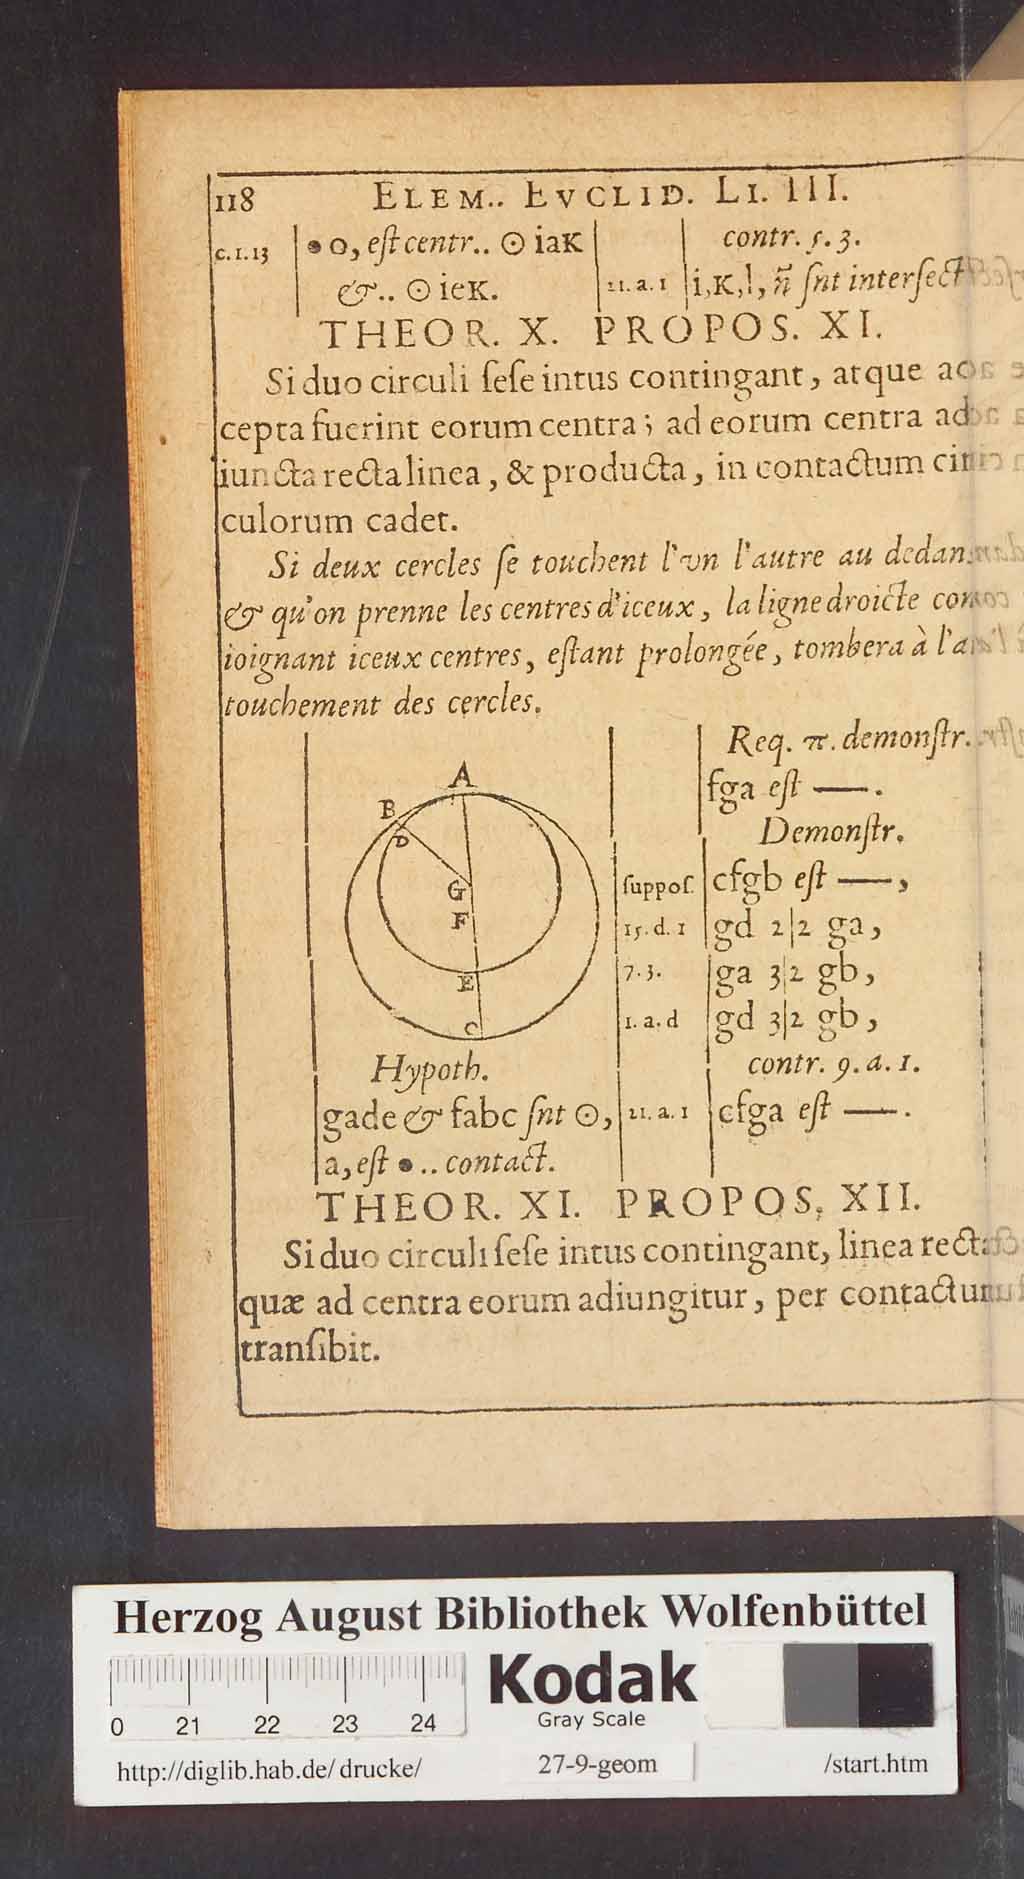 118 ELEM.. EVCLID. LI. III.
c.1.13 • o, est centr.. ⊙ iaK contr. 5. 3.
&.. ⊙ ieK. 21. a. 1 i,K,l, ñ snt intersect
THEOR. X. PROPOS. XI.
Si duo circuli sese intus contingant, atque ac
cepta fuerint eorum centra; ad eorum centra ad
iuncta recta linea, & producta, in contactum cir
culorum cadet.
Si deux cercles se touchent l'vn l'autre au dedans
& qu'on prenne les centres d'iceux, la ligne droicte con
ioignant iceux centres, estant prolongée, tombera à l'a
touchement des cercles.
Req. π. demonstr.
fga est —.
Demonstr.
suppos. cfgb est —,
15. d. 1 gd 2|2 ga,
7. 3. ga 3|2 gb,
1. a. d gd 3|2 gb,
contr. 9. a. 1.
21. a. 1 cfga est —.
A
B
D
G
F
E
C
Hypoth.
gade & fabc snt ⊙,
a, est • .. contact.
THEOR. XI. PROPOS. XII.
Si duo circuli sese intus contingant, linea recta
quæ ad centra eorum adiungitur, per contactum
transibit.
Herzog August Bibliothek Wolfenbüttel
0 21 22 23 24
Kodak
Gray Scale
http://diglib.hab.de/drucke/ 27-9-geom /start.htm